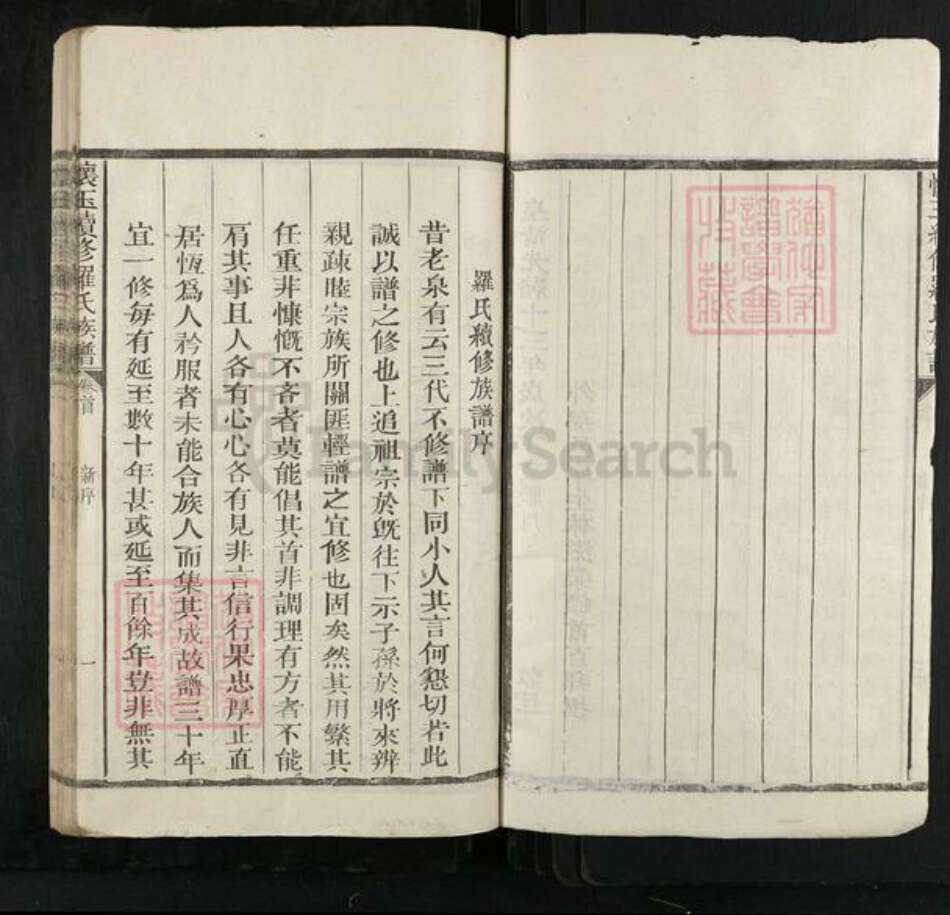 羅氏續修族譜序
昔老泉有云三代不修譜下同小人其言何懇切若此
誠以譜之修也上追祖宗於旣往下示子孫於將來辨
親疎睦宗族所關匪輕譜之宜修也固矣然其用繁其
任重非慷慨不吝者莫能倡其首非調理有方者不能
肩其事且人各有心心各有見非言信行果忠厚正直
居恆爲人矜服者未能合族人而集其成故譜三十年
宜一修每有延至數十年甚或延至百餘年豈非無其
懷玉續修羅氏族譜 卷首 新序 一
FamilySearch